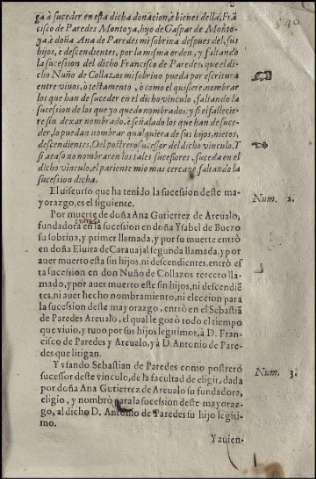 ga à suceder en esta dicha donacion, è bienes della, Frã
cisco de Paredes Montoya, hijo de Gaspar de Monto-
ya, è doña Ana de Paredes mi sobrina despues del, sus
hijos, è descendientes, por la misma orden, y faltando
la sucesion del dicho Francisco de Paredes, que el di-
cho Nuño de Collazos mi sobrino pueda por escritura
entre viuos, ò testamento, ò como el quisiere nombrar
los que han de suceder en el dicho vinculo, faltando la
sucesion de los que yo quedo nombrados: y si el fallecie-
re sin dexar nombrado, è señalado los que han de suce-
der, lo puedan nombrar qualquiera de sus hijos, nietos,
descendientes, O el postrero sucessor del dicho vinculo. Y
si acaso no nombraren los tales sucessores, suceda en el
dicho vinculo, el pariente mio mas cercano, faltando la
sucesion dicha.
El discurso que ha tenido la sucession deste ma-
yorazgo, es el siguiente.
Num. 2.
Por muerte de doña Ana Gutierrez de Areualo,
fundadora entrò en la sucession doña Ysabel de Buero
su sobrina, y primer llamada, y por su muerte entrò
en doña Eluira de Carauajal segunda llamada, y por
auer muerto esta sin hijos, ni descendientes, entrò es
ta sucession en don Nuño de Collazos tercero lla-
mado, y por auer muerto este sin hijos, ni descendiẽ
tes, ni auer hecho nombramiento, ni eleccion para
la sucession deste mayorazgo, entrò en el Sebastiã
de Paredes Areualo, el qual le gozò todo el tiempo
que viuio, y tuuo por sus hijos legitimos, à D. Fran-
cisco de Paredes y Areualo, y à D. Antonio de Pare-
des que litigan.
Num. 3.
Y vsando Sebastian de Paredes como postrero
sucessor deste vinculo, de la facultad de eligir, dada
por doña Ana Gutierrez de Areualo su fundadora,
eligio, y nombrò para la sucession deste mayoraz-
go, al dicho D. Antonio de Paredes su hijo legiti-
mo.
Y auien-